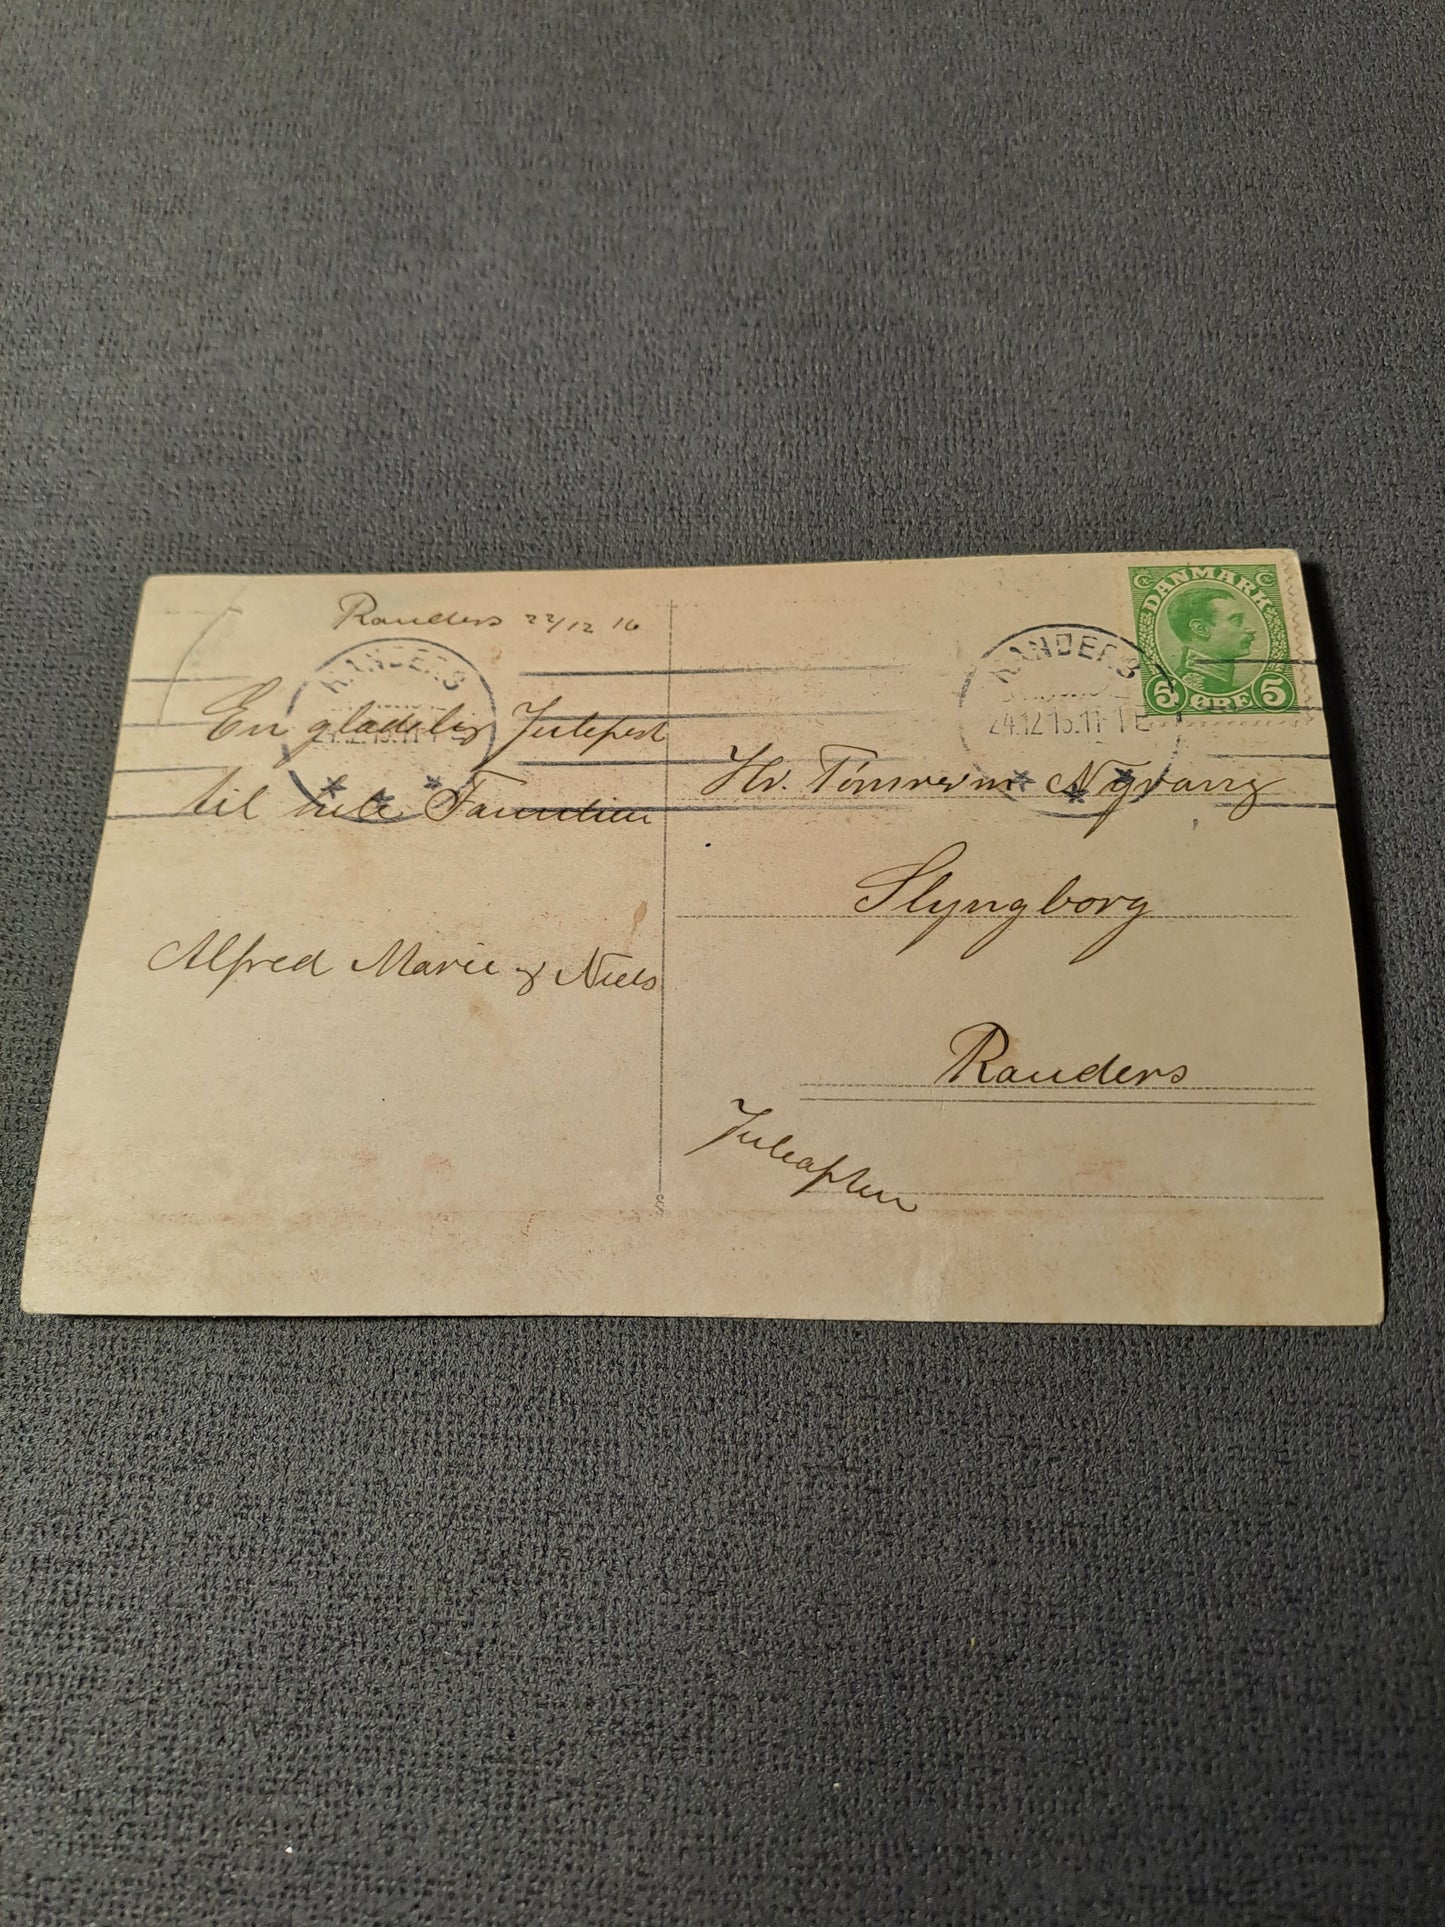 Randers 22/12 16
En glædelig Julefest
til hele Familien
Alfred Marie & Niels
DANMARK
5 ØRE 5
RANDERS
24.12.16.11-1 E
Hr. Tømrerm Nyvang
Slyngborg
Randers
Juleaften